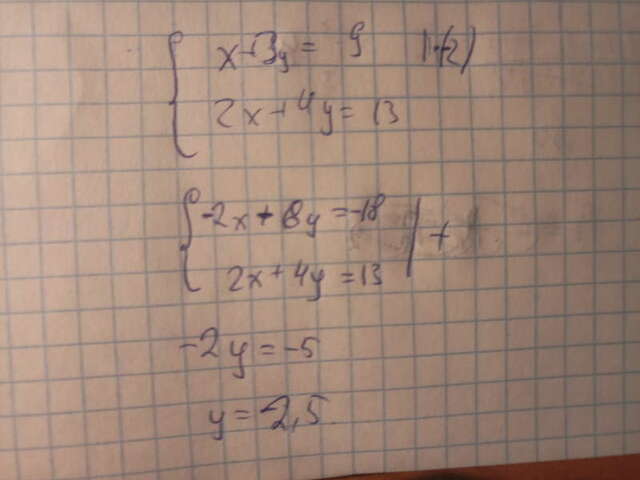 x+3y = 9 |·(-2)
2x+4y = 13
-2x + 6y = -18
2x+4y = 13 | +
-2y = -5
y = 2,5